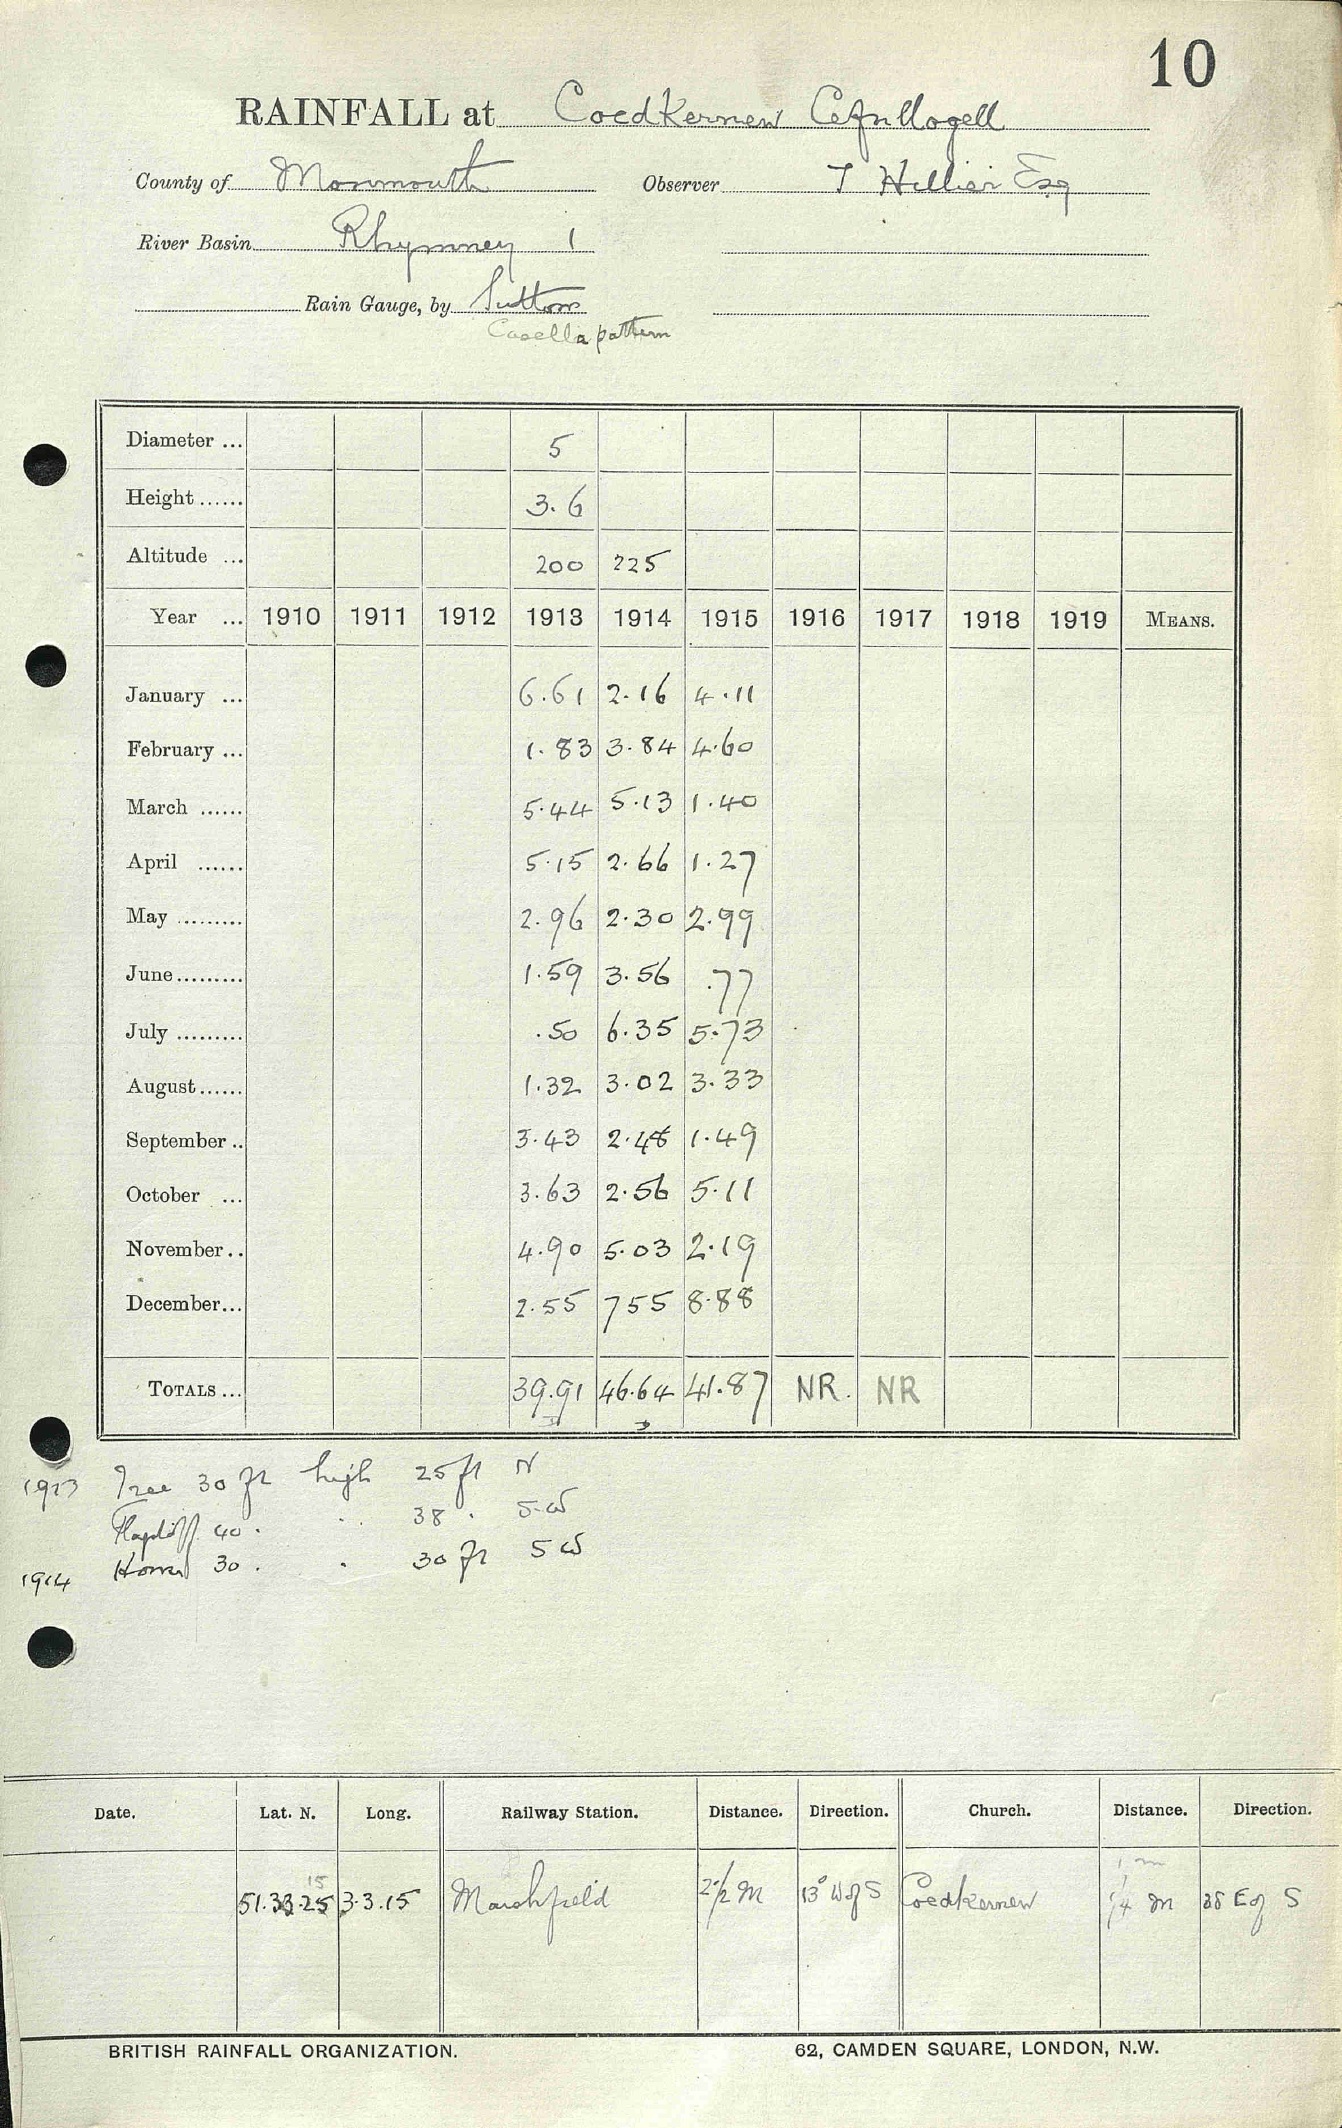 10
RAINFALL at Coedkernew Cefnllogell
County of Monmouth Observer T Hillier Esq
River Basin Rhymney 1
Rain Gauge, by Sutton
Casella pattern
Diameter ... 5
Height ...... 3.6
Altitude ... 200 225
Year ... 1910 1911 1912 1913 1914 1915 1916 1917 1918 1919 MEANS.
January ... 6.61 2.16 4.11
February ... 1.83 3.84 4.60
March ...... 5.44 5.13 1.40
April ...... 5.15 2.66 1.27
May ......... 2.96 2.30 2.99
June ......... 1.59 3.56 .77
July ......... .50 6.35 5.73
August ...... 1.32 3.02 3.33
September .. 3.43 2.48 1.49
October ... 3.63 2.56 5.11
November .. 4.90 5.03 2.19
December... 2.55 7 55 8.88
TOTALS ... 39.91 46.64 41.87 NR. NR
1913 Tree 30 ft high 25 ft N
Flagstaff 40 . . 38 . S.W
1914 House 30 . . 30 ft S W
Date. Lat. N. Long. Railway Station. Distance. Direction. Church. Distance. Direction.
15 1 m
51.33.25 3.3.15 Marshfield 2 1/2 M 13° W of S Coedkernew 1/4 m 28 E of S
BRITISH RAINFALL ORGANIZATION. 62, CAMDEN SQUARE, LONDON, N.W.